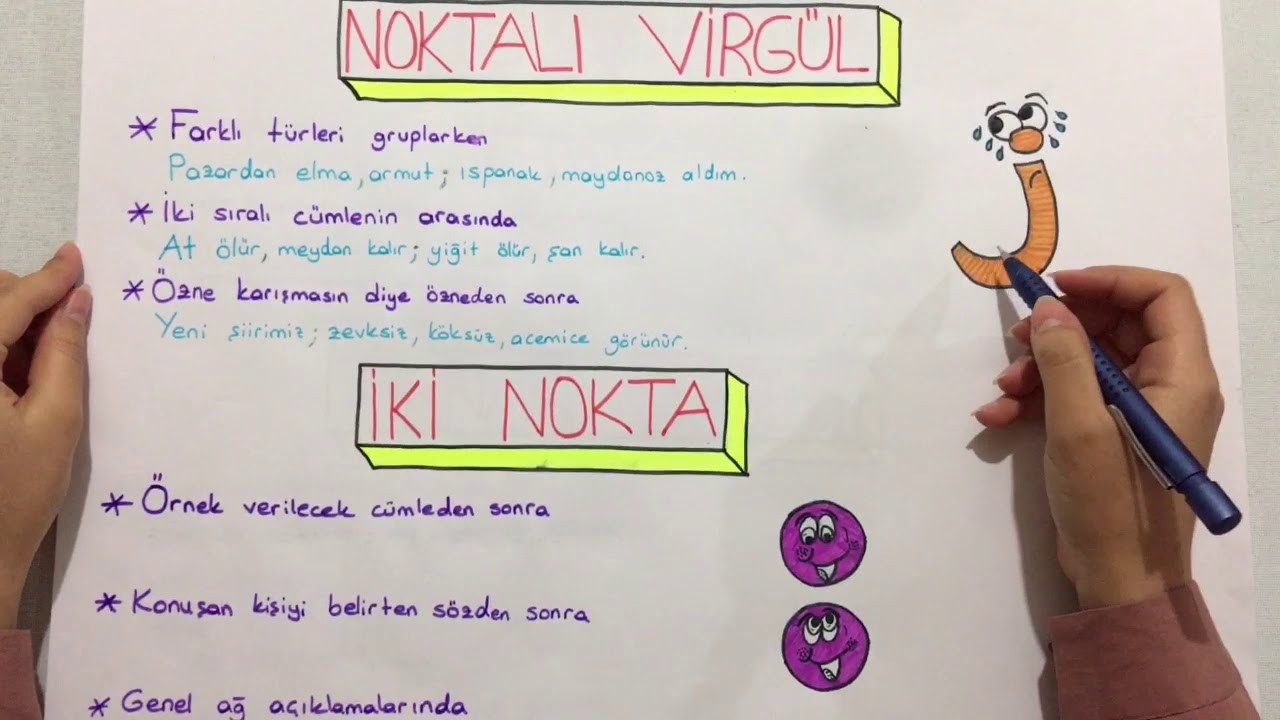 NOKTALI VİRGÜL
* Farklı türleri gruplarken
Pazardan elma, armut; ıspanak, maydanoz aldım.
* İki sıralı cümlenin arasında
At ölür, meydan kalır; yiğit ölür, şan kalır.
* Özne karışmasın diye özneden sonra
Yeni şiirimiz; zevksiz, köksüz, acemice görünür.
İKİ NOKTA
* Örnek verilecek cümleden sonra
* Konuşan kişiyi belirten sözden sonra
* Genel ağ açıklamalarında